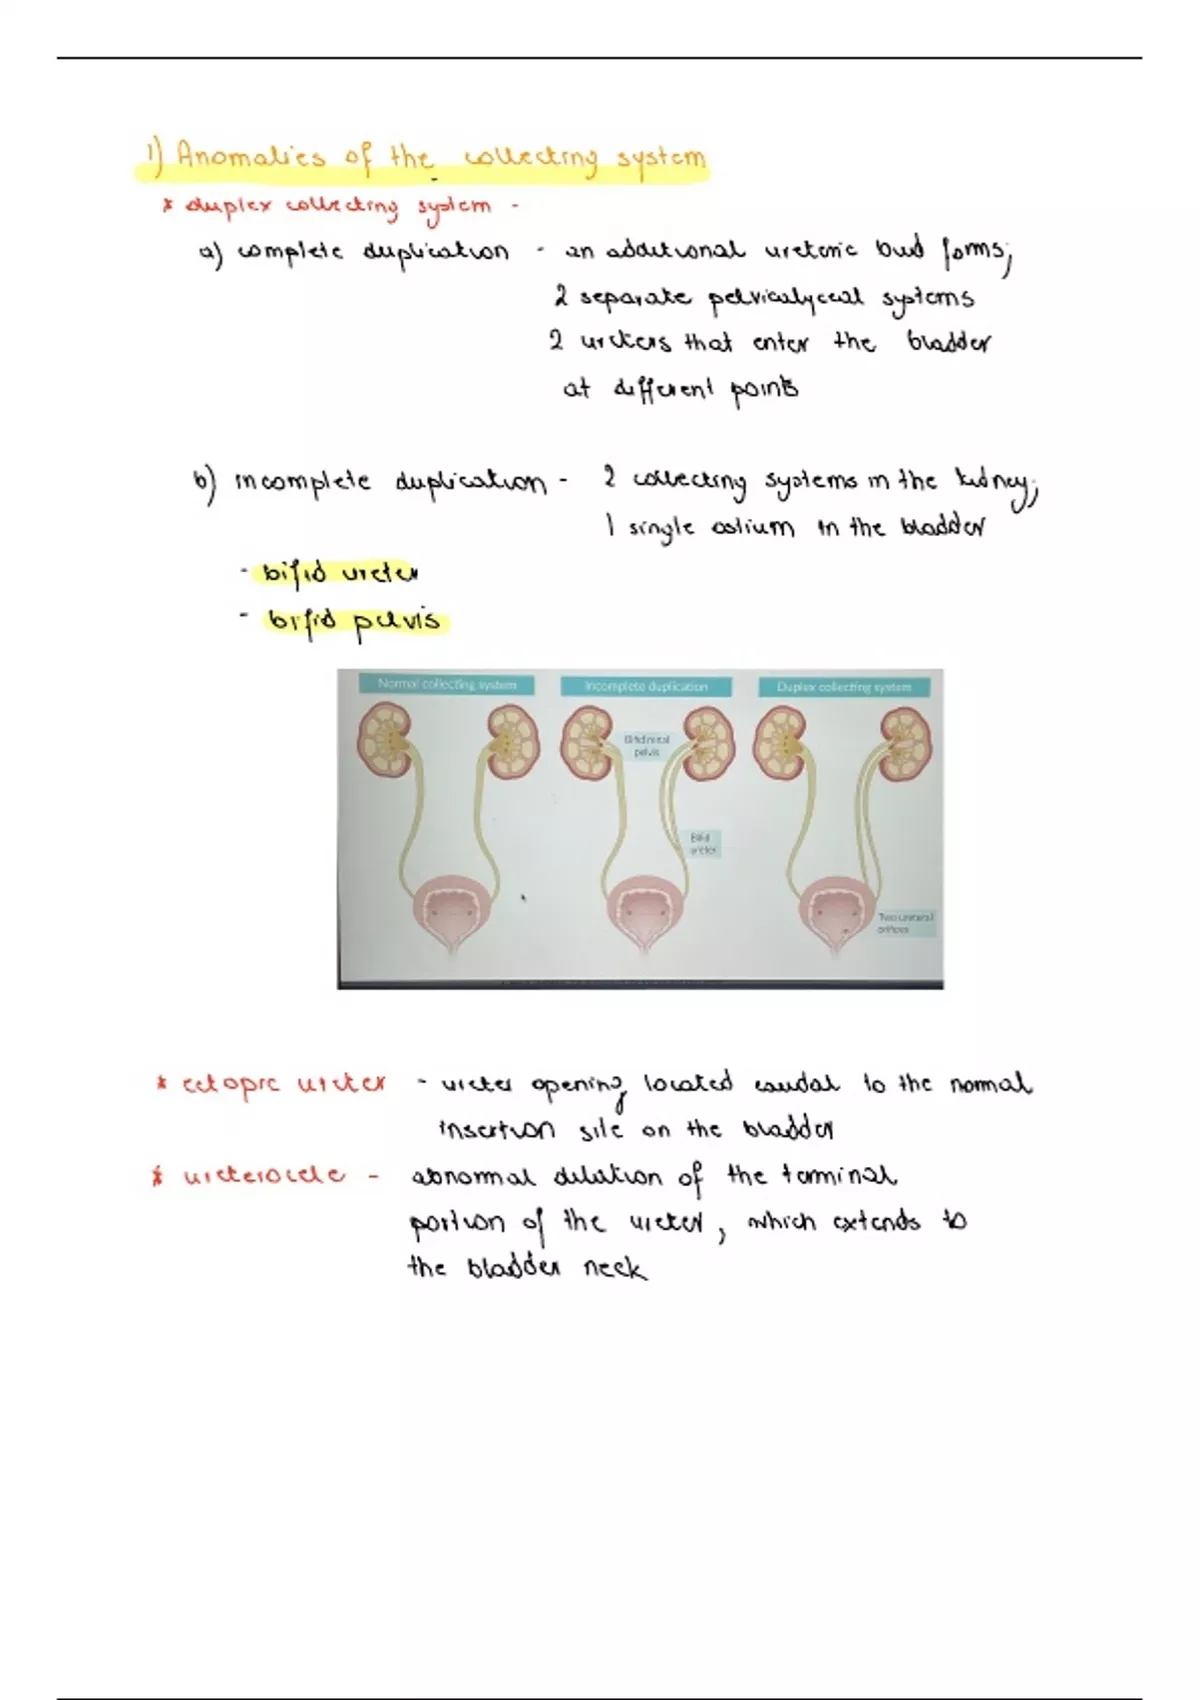 1) Anomalies of the collecting system
* duplex collecting system -
a) complete duplication - an additional ureteric bud forms;
2 separate pelvicalyceal systems
2 ureters that enter the bladder
at different points
b) incomplete duplication - 2 collecting systems in the kidney;
1 single ostium in the bladder
- bifid ureter
- bifid pelvis
Normal collecting system
Incomplete duplication
Duplex collecting system
Bifid renal
pelvis
Bifid
ureter
Two ureteral
orifices
* ectopic ureter - ureter opening located caudal to the normal
insertion site on the bladder
* ureterocele - abnormal dilation of the terminal
portion of the ureter, which extends to
the bladder neck